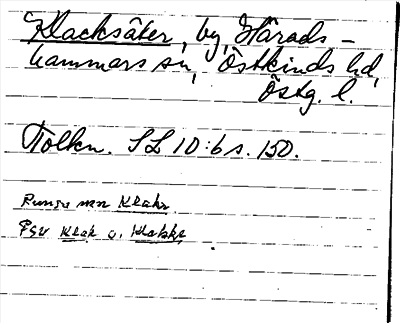 Klacksäter, by, Härads-
hammars sn, Östkinds hd,
Östg. l.
Tolkn. SL 10:6 s. 150.
Runsv mn Klakr
Fsv Klak o. Klakke